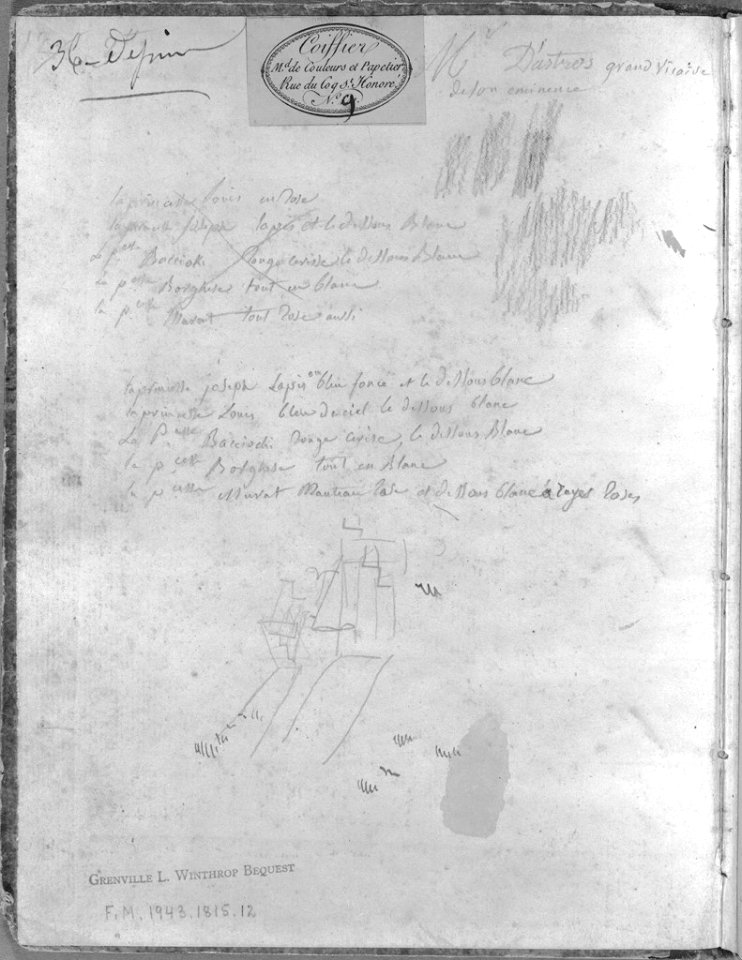 36 - Dessin
Coiffier
Md. de Couleurs et Papetier
Rue du Coq St. Honoré
No. 9
Mr D'astros grand vicaire
de son eminence
la princesse Louis en Rose
la princesse Joseph lapis et le dessous Blanc
La pesse Baccioki Rouge cerise le dessous Blanc
la pesse Borghese tout en blanc
la p.esse Murat tout Rose aussi
la princesse joseph Lapis ou bleu foncé et le dessous blanc
la princesse Louis bleu de ciel le dessous blanc
La Pesse Bacciochi Rouge cerise, le dessous Blanc
la pcesse Borghese tout en Blanc
la pcesse Murat Manteau Rose et dessous blanc à rayes Roses
GRENVILLE L. WINTHROP BEQUEST
F.M. 1943.1815.12